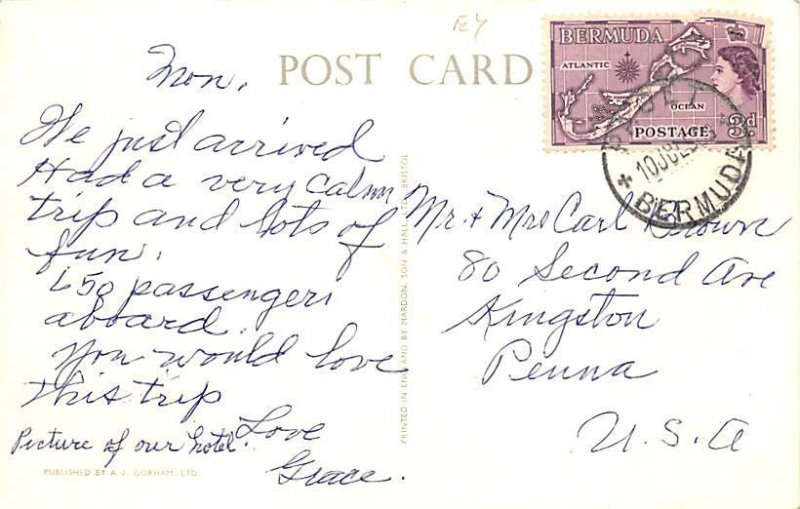 E4
POST CARD
BERMUDA
ATLANTIC
OCEAN
POSTAGE 3d
PAGET
10 JUL
BERMUDA
Mon,
We just arrived
Had a very calm
trip and lots of
fun.
650 passengers
aboard.
You would love
this trip
Love
Grace.
Picture of our hotel.
PUBLISHED BY A. J. GORHAM, LTD.
PRINTED IN ENGLAND BY MARDON, SON & HALL, LTD., BRISTOL
Mr. + Mrs Carl Brown
80 Second Ave
Kingston
Penna
U.S.A